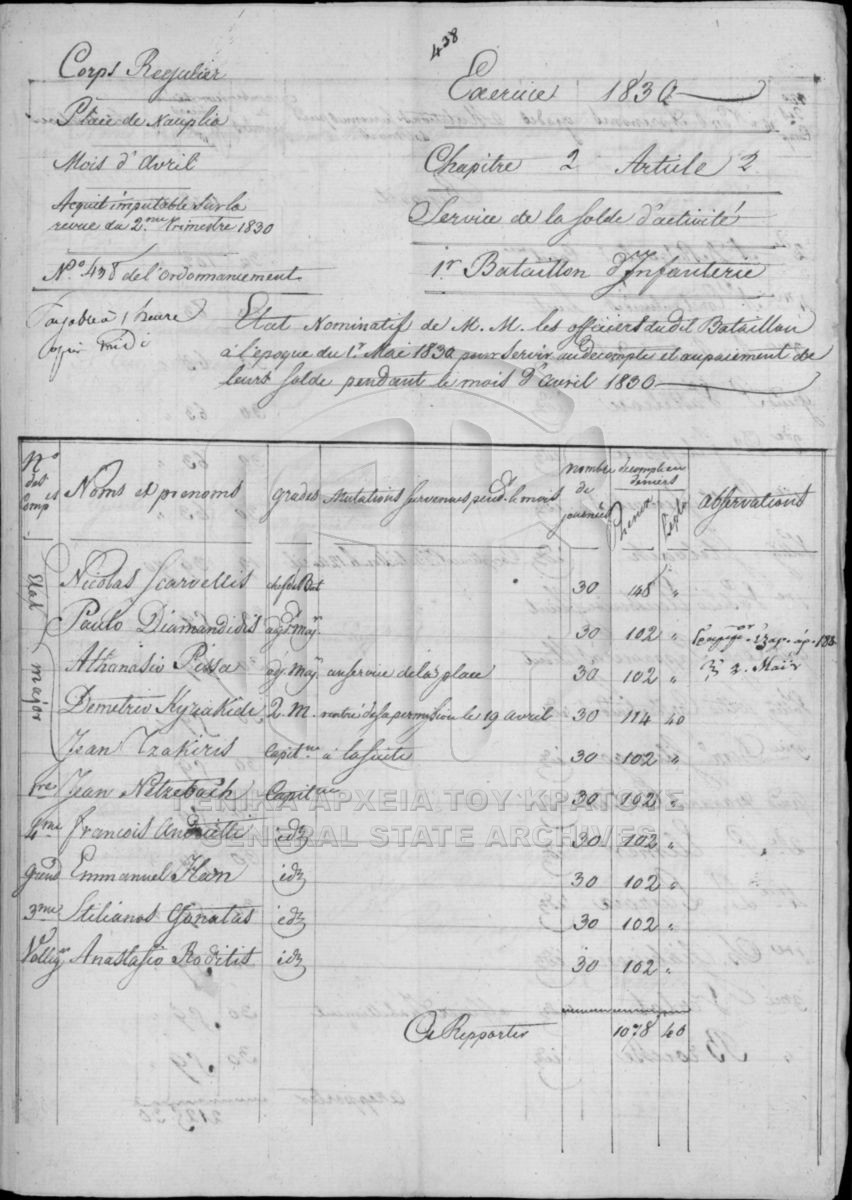 438
Corps Regulier
Place de Nauplia
Mois d'Avril
Acquit imputable sur la
revue du 2.me trimestre 1830
N.o 438 de l'ordonnancement
Payable à 1 heure
après midi
Exercice 1830
Chapitre 2 Article 2
Service de la solde d'activité
1.r Bataillon d'Infanterie
Etat Nominatif de M. M. les officiers du dit Bataillon
à l'epoque du 1.r Mai 1830 pour servir au decompte et au paiement de
leurs solde pendant le mois d'avril 1830
N.o des Comp.es Noms et prenoms grades Mutations survenues pend.t le mois nombre de journées decompte en deniers Phenix Lepta observations
Etat major
Nicolas Scarvellis chef de Bat 30 148 "
Paulo Diamandidis adj.t Maj. 30 102 "
Athanasio Pissa adj. Maj. au service de la place 30 102 "
Demetrio Kyriakide Q. M. rentré de sa permission le 19 avril 30 114 40
Jean Tzakiris Capit.ne à la suite 30 102 "
1re Jean Netzebach Capit.ne 30 102 "
4me François Andrietti id 30 102 "
Grend Emmanuel Han id 30 102 "
3.me Stilianos Gonatas id 30 102 "
Voltig.rs Anastasio Roditis id 30 102 "
A Repporter 1078 40
ΓΕΝΙΚΑ ΑΡΧΕΙΑ ΤΟΥ ΚΡΑΤΟΥΣ
GENERAL STATE ARCHIVES